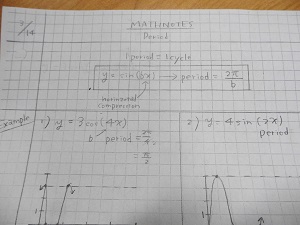 7/14
MATHNOTES
Period
1 period = 1 cycle
y = sin(bx) → period = 2π/b
horizontal
compression
Example 1) y = 3cos(4x)
b period = 2π/4
= π/2
2) y = 4 sin(2x)
period
1
1